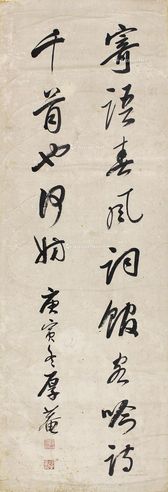 寄語春風詞館客吟詩
千首也何妨
庚寅冬厚菴